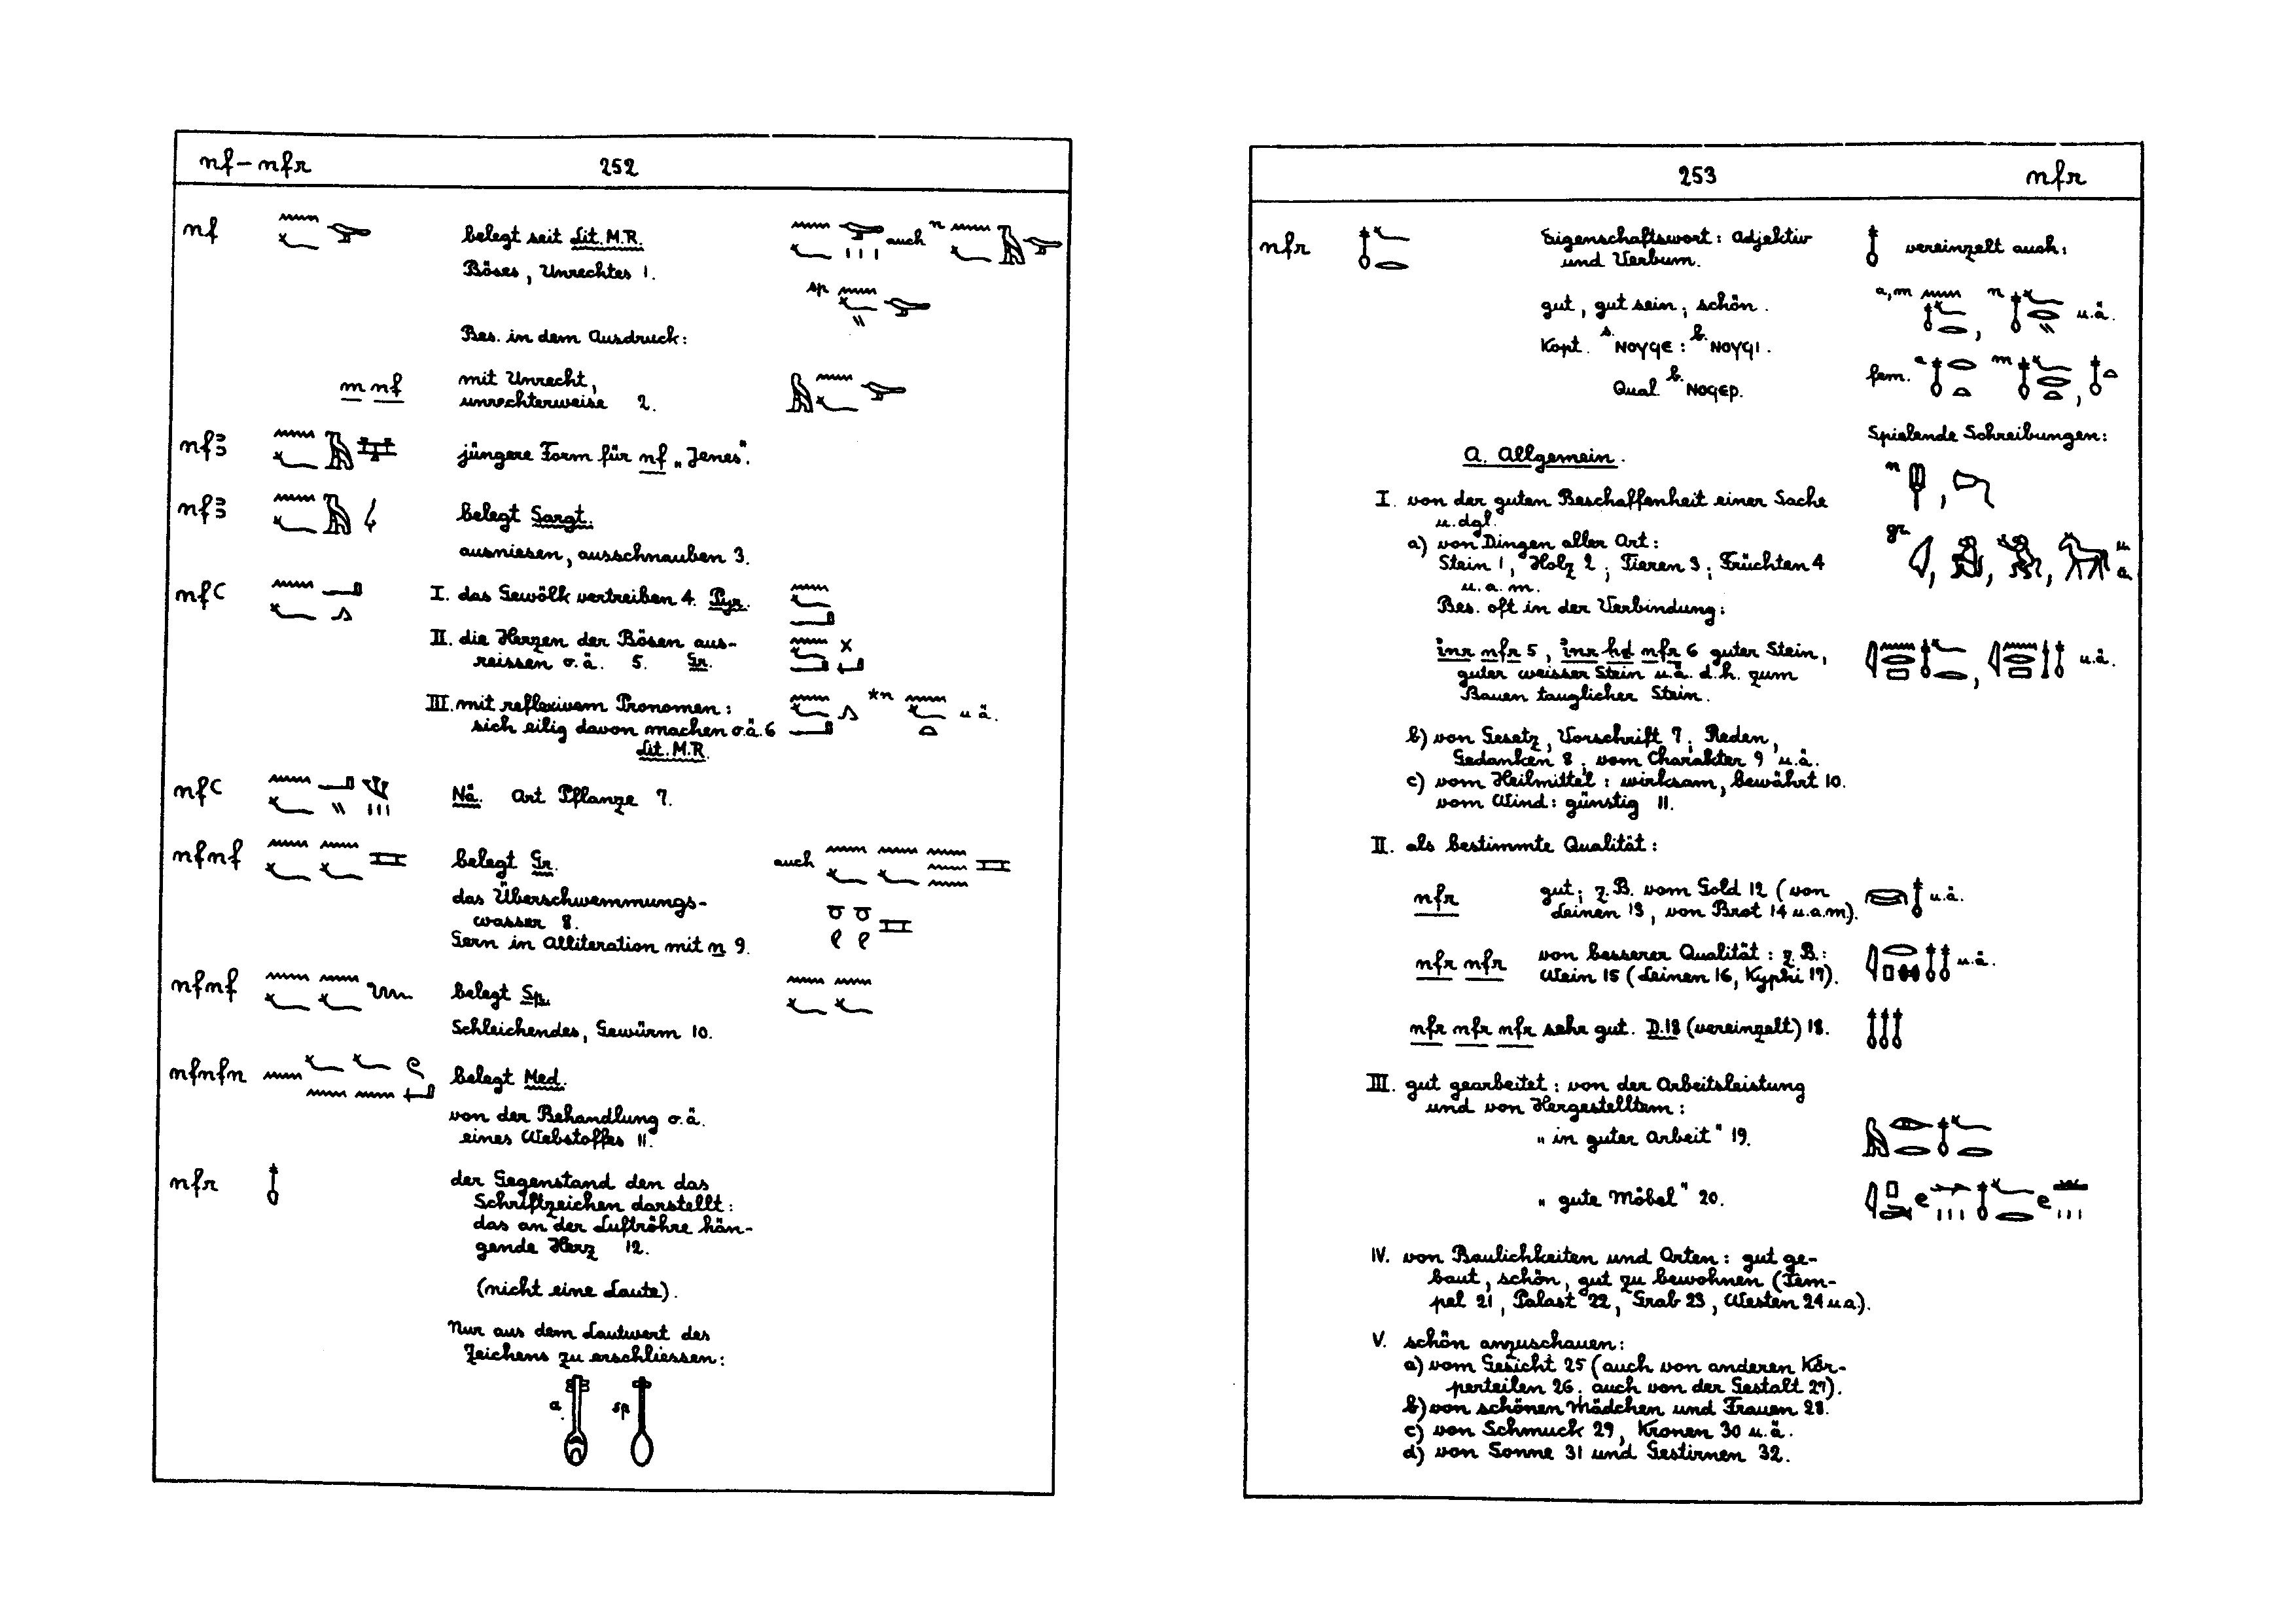 nf – nfr 252
nf belegt seit Lit. M.R. auch n
Böses, Unrechtes 1.
sp
Bes. in dem Ausdruck:
m nf mit Unrecht,
unrechterweise 2.
nfꜣ jüngere Form für nf „Jenes".
nfꜣ belegt Sargt.
ausniesen, ausschnauben 3.
nfꜥ I. das Gewölk vertreiben 4. Pyr.
II. die Herzen der Bösen aus-
reissen o.ä. 5. Gr.
III. mit reflexivem Pronomen: *n u ä.
sich eilig davon machen o.ä. 6
Lit. M.R.
nfꜥ Nä. Art Pflanze 7.
nfnf belegt Gr. auch
das Überschwemmungs-
wasser 8.
Gern in Alliteration mit n 9.
nfnf belegt Sp.
Schleichendes, Gewürm 10.
nfnfn belegt Med.
von der Behandlung o.ä.
eines Webstoffes 11.
nfr der Gegenstand den das
Schriftzeichen darstellt:
das an der Luftröhre hän-
gende Herz 12.
(nicht eine Laute).
Nur aus dem Lautwert des
Zeichens zu erschliessen:
a. sp
253 nfr
nfr Eigenschaftswort: Adjektiv vereinzelt auch:
und Verbum.
gut, gut sein; schön. a, m n u.ä.
Kopt. s. ⲛⲟⲩϥⲉ : b. ⲛⲟⲩϥⲓ.
Qual. b. ⲛⲟϥⲉⲣ. fem. a m ,
Spielende Schreibungen:
A. Allgemein.
n ,
I. von der guten Beschaffenheit einer Sache
u. dgl.
a) von Dingen aller Art: gr u
Stein 1, Holz 2; Tieren 3; Früchten 4 , , , ä
u. a. m.
Bes. oft in der Verbindung:
inr nfr 5, inr ḥḏ nfr 6 guter Stein, , u.ä.
guter weisser Stein u.ä. d.h. zum
Bauen tauglicher Stein.
b) von Gesetz, Vorschrift 7; Reden,
Gedanken 8; vom Charakter 9 u.ä.
c) vom Heilmittel: wirksam, bewährt 10.
vom Wind: günstig 11.
II. als bestimmte Qualität:
nfr gut; z.B. vom Gold 12 (von u.ä.
Leinen 13, von Brot 14 u.a.m).
nfr nfr von besserer Qualität: z.B.: u.ä.
Wein 15 (Leinen 16, Kyphi 17).
nfr nfr nfr sehr gut. D.18 (vereinzelt) 18.
III. gut gearbeitet: von der Arbeitsleistung
und von Hergestelltem:
„in guter Arbeit" 19.
„gute Möbel" 20.
IV. von Baulichkeiten und Orten: gut ge-
baut, schön, gut zu bewohnen (Tem-
pel 21, Palast 22, Grab 23, Westen 24 u.a.).
V. schön anzuschauen:
a) vom Gesicht 25 (auch von anderen Kör-
perteilen 26; auch von der Gestalt 27).
b) von schönen Mädchen und Frauen 28.
c) von Schmuck 29, Kronen 30 u.ä.
d) von Sonne 31 und Gestirnen 32.